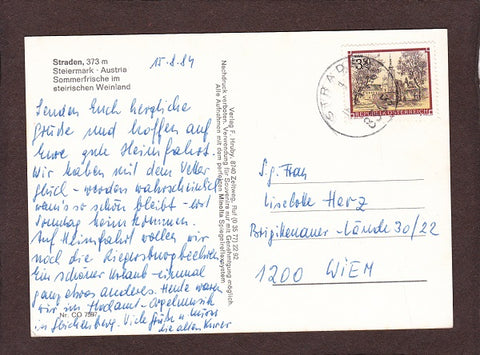 Straden, 373 m
Steiermark - Austria
Sommerfrische im
steirischen Weinland
15.8.84
Senden Euch herzliche
Grüße und hoffen auf
Eure gute Heimfahrt.
Wir haben mit dem Wetter
Glück - werden wahrscheinlich
wenn's so schön bleibt - erst
Sonntag heimkommen.
Auf Heimfahrt wollen wir
noch die Riegersburg besichtigen
Ein schöner Urlaub - einmal
ganz etwas anderes. Heute waren
wir im Hochamt - Orgelmusik
in Viele Grüße u.
die alten
Nr. CO 7587
Verlag F. Hruby, 8740 Zeltweg, Ruf (0 35 77) 22 92
Nachdruck verboten, Verwendung für Souvenire nur mit Genehmigung möglich.
Alle Aufnahmen mit dem perfekten Minolta Spiegelreflexsystem
S 3.50
REPUBLIK ÖSTERREICH
STRADEN
Sg. Frau
Liselotte Herz
Brigittenauer-Lände 30/22
1200 WIEN